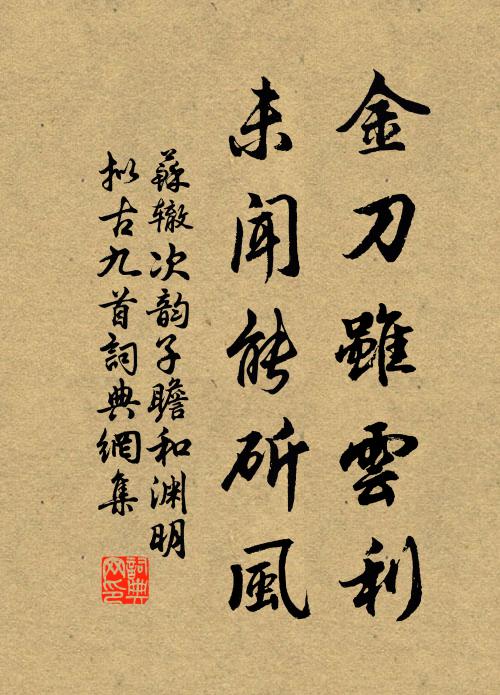 金刀雖雲利
未聞能斫風
蘇辙次韵子瞻和渊明
拟古九首詞典網集
詞典网印